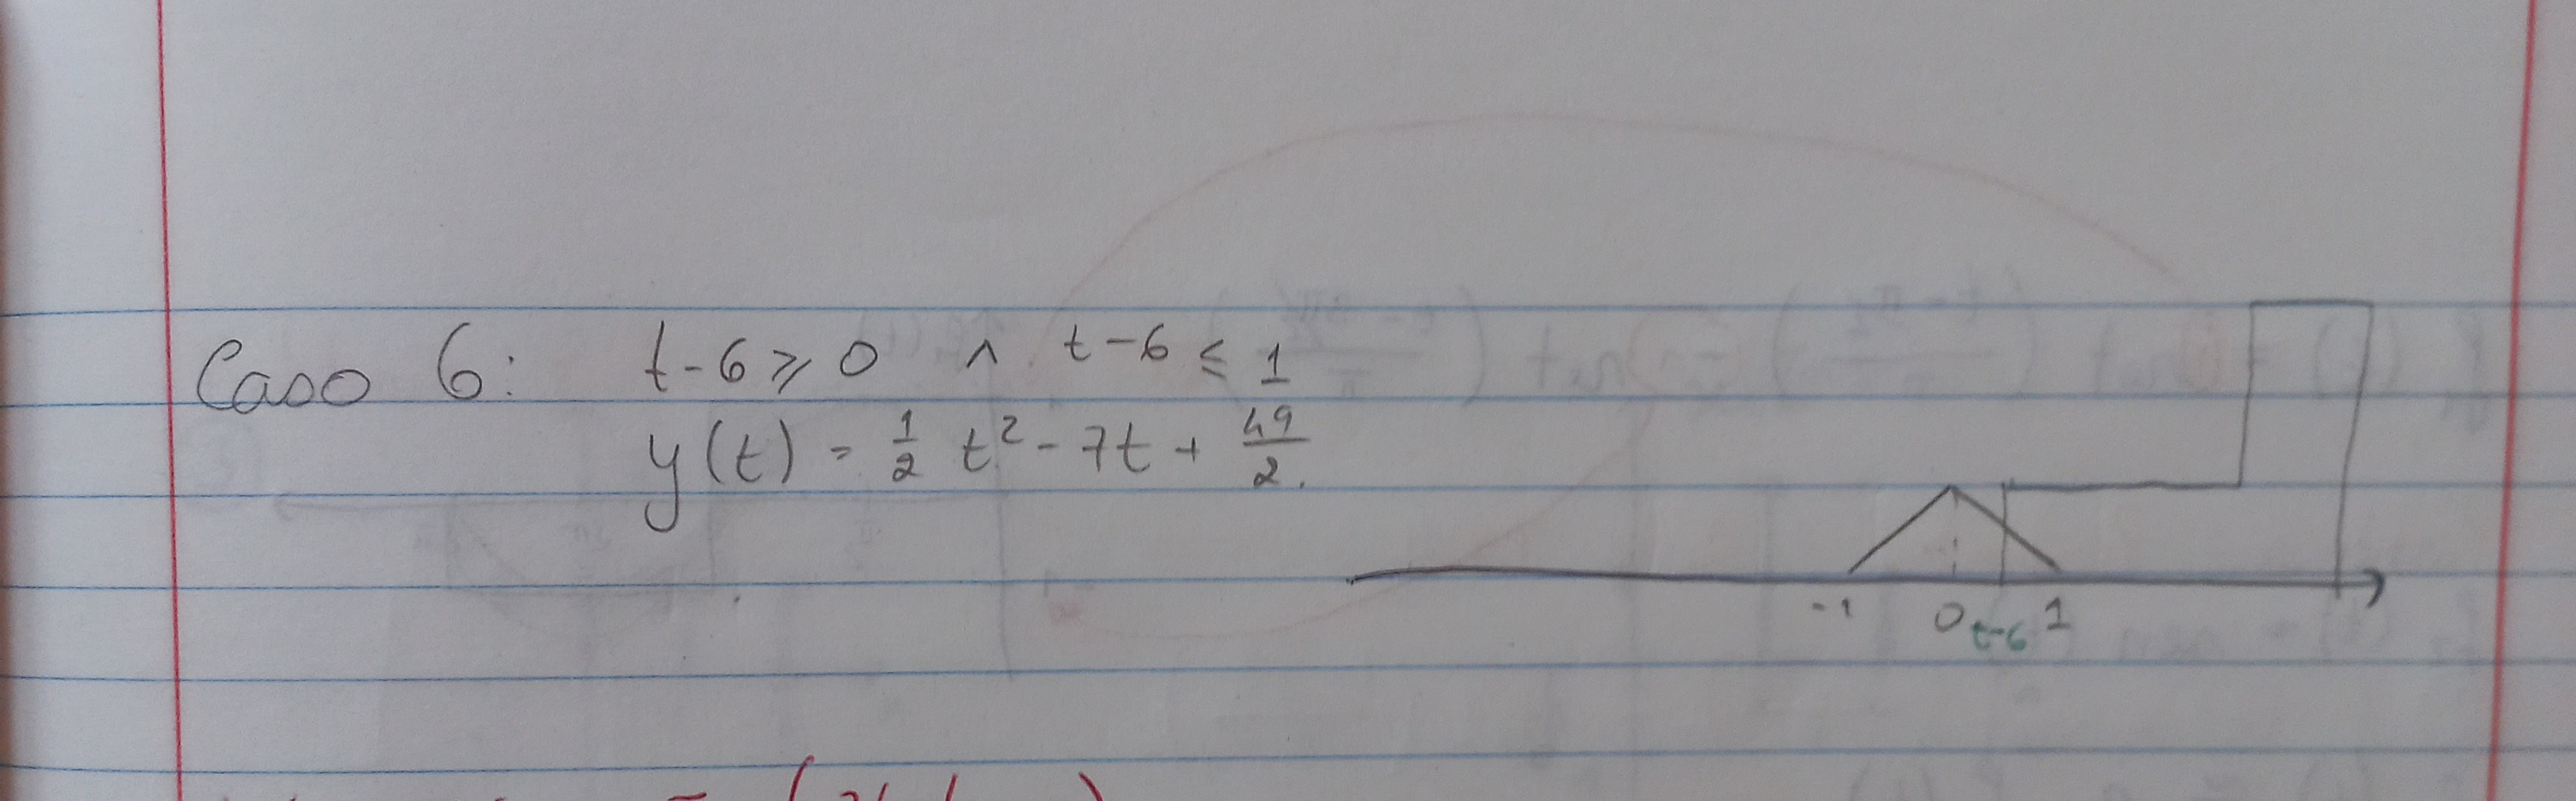 Caso 6: t-6 ≥ 0 ∧ t-6 ≤ 1
y(t) = 1/2 t² - 7t + 49/2.
-1 0 t-6 1